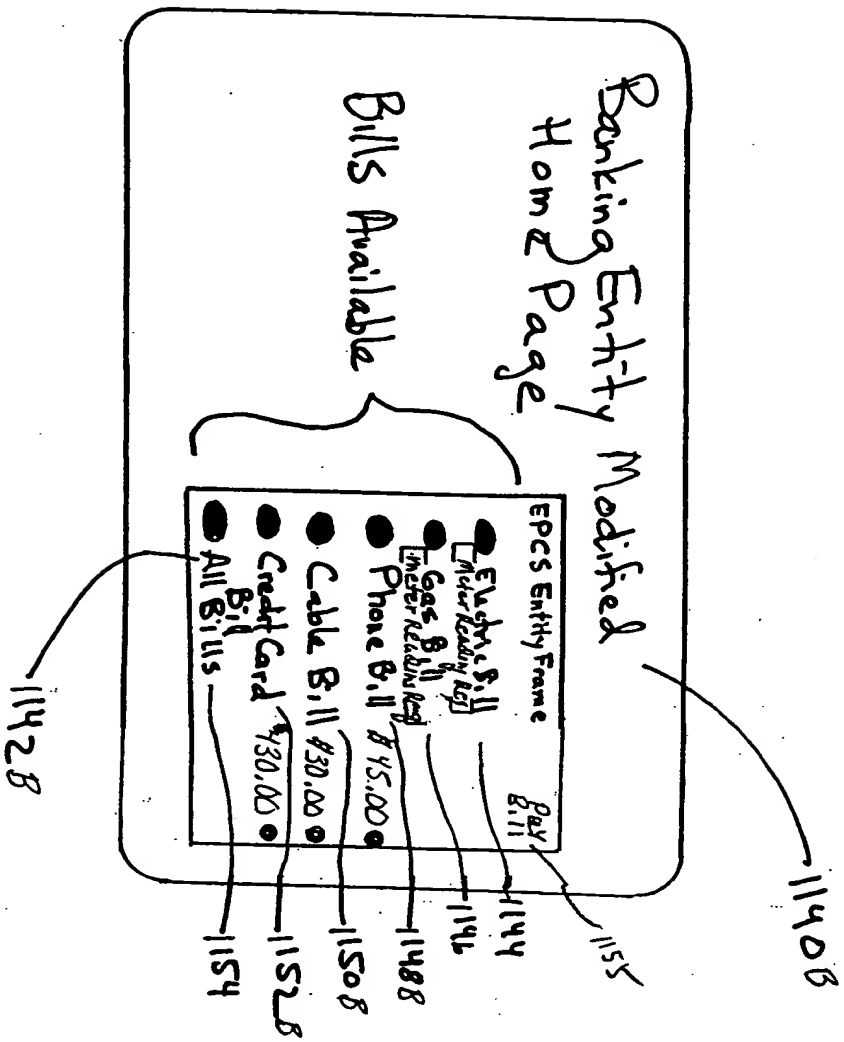 Banking Entity Modified
Home Page
Bills Available
EPCS Entity Frame
Pay
Bill
Electric Bill
Meter Reading Req
Gas Bill
meter Reading Req
Phone Bill $45.00
Cable Bill $30.00
Credit Card $430.00
Bill
All Bills
1140B
1155
1144
1146
1148B
1150B
1152B
1154
1142B